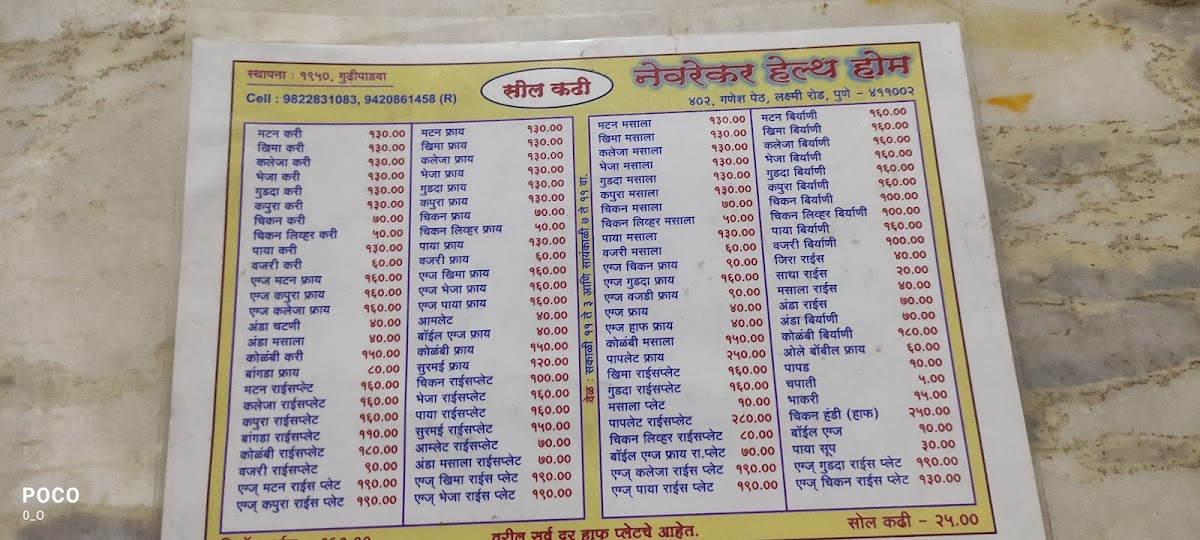 स्थापना : १९५०, गुढीपाडवा
Cell : 9822831083, 9420861458 (R)
सोल कढी
नेवरेकर हेल्थ होम
४०२, गणेश पेठ, लक्ष्मी रोड, पुणे - ४११००२
मटन करी १३०.००
खिमा करी १३०.००
कलेजा करी १३०.००
भेजा करी १३०.००
गुडदा करी १३०.००
कपुरा करी १३०.००
चिकन करी ७०.००
चिकन लिव्हर करी ५०.००
पाया करी १३०.००
वजरी करी ६०.००
एग्ज मटन फ्राय १६०.००
एग्ज कपुरा फ्राय १६०.००
एग्ज कलेजा फ्राय १६०.००
अंडा चटणी ४०.००
अंडा मसाला ४०.००
कोळंबी करी १५०.००
बांगडा फ्राय ८०.००
मटन राईसप्लेट १६०.००
कलेजा राईसप्लेट १६०.००
कपुरा राईसप्लेट १६०.००
बांगडा राईसप्लेट ११०.००
कोळंबी राईसप्लेट १८०.००
वजरी राईसप्लेट ९०.००
एग्ज् मटन राईस प्लेट १९०.००
एग्ज् कपुरा राईस प्लेट १९०.००
मटन फ्राय १३०.००
खिमा फ्राय १३०.००
कलेजा फ्राय १३०.००
भेजा फ्राय १३०.००
गुडदा फ्राय १३०.००
कपुरा फ्राय १३०.००
चिकन फ्राय ७०.००
चिकन लिव्हर फ्राय ५०.००
पाया फ्राय १३०.००
वजरी फ्राय ६०.००
एग्ज खिमा फ्राय १६०.००
एग्ज भेजा फ्राय १६०.००
एग्ज पाया फ्राय १६०.००
आमलेट ४०.००
बॉईल एग्ज फ्राय ४०.००
कोळंबी फ्राय १५०.००
सुरमई फ्राय १२०.००
चिकन राईसप्लेट १००.००
भेजा राईसप्लेट १६०.००
पाया राईसप्लेट १६०.००
सुरमई राईसप्लेट १५०.००
आम्लेट राईसप्लेट ७०.००
अंडा मसाला राईसप्लेट ७०.००
एग्ज् खिमा राईस प्लेट १९०.००
एग्ज् भेजा राईस प्लेट १९०.००
वेळ : सकाळी ११ ते ३ आणि सायंकाळी ७ ते ११ वा.
मटन मसाला १३०.००
खिमा मसाला १३०.००
कलेजा मसाला १३०.००
भेजा मसाला १३०.००
गुडदा मसाला १३०.००
कपुरा मसाला १३०.००
चिकन मसाला ७०.००
चिकन लिव्हर मसाला ५०.००
पाया मसाला १३०.००
वजरी मसाला ६०.००
एग्ज चिकन फ्राय ९०.००
एग्ज गुडदा फ्राय १६०.००
एग्ज वजडी फ्राय ९०.००
एग्ज फ्राय ४०.००
एग्ज हाफ फ्राय ४०.००
कोळंबी मसाला १५०.००
पापलेट फ्राय २५०.००
खिमा राईसप्लेट १६०.००
गुडदा राईसप्लेट १६०.००
मसाला प्लेट १०.००
पापलेट राईसप्लेट २८०.००
चिकन लिव्हर राईसप्लेट ८०.००
बॉईल एग्ज फ्राय रा.प्लेट ७०.००
एग्ज् कलेजा राईस प्लेट १९०.००
एग्ज् पाया राईस प्लेट १९०.००
मटन बिर्याणी १६०.००
खिमा बिर्याणी १६०.००
कलेजा बिर्याणी १६०.००
भेजा बिर्याणी १६०.००
गुडदा बिर्याणी १६०.००
कपुरा बिर्याणी १६०.००
चिकन बिर्याणी १००.००
चिकन लिव्हर बिर्याणी १००.००
पाया बिर्याणी १६०.००
वजरी बिर्याणी १००.००
जिरा राईस ४०.००
साधा राईस २०.००
मसाला राईस ४०.००
अंडा राईस ७०.००
अंडा बिर्याणी ७०.००
कोळंबी बिर्याणी १८०.००
ओले बोंबील फ्राय ६०.००
पापड १०.००
चपाती ५.००
भाकरी १५.००
चिकन हंडी (हाफ) २५०.००
बॉईल एग्ज १०.००
पाया सूप ३०.००
एग्ज् गुडदा राईस प्लेट १९०.००
एग्ज् चिकन राईस प्लेट १३०.००
वरील सर्व दर हाफ प्लेटचे आहेत.
सोल कढी - २५.००
POCO